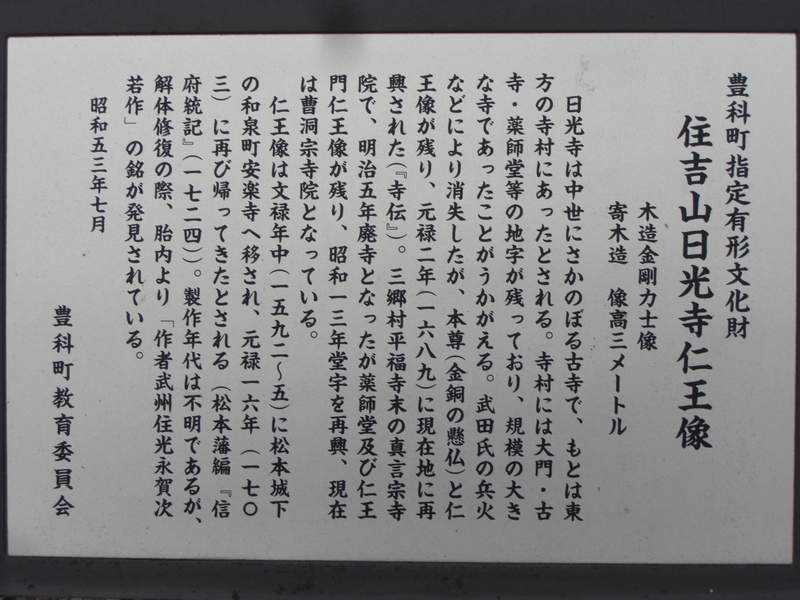 豊科町指定有形文化財
住吉山日光寺仁王像
木造金剛力士像
寄木造　像高三メートル
日光寺は中世にさかのぼる古寺で、もとは東
方の寺村にあったとされる。寺村には大門・古
寺・薬師堂等の地字が残っており、規模の大き
な寺であったことがうかがえる。武田氏の兵火
などにより消失したが、本尊(金銅の懸仏)と仁
王像が残り、元禄二年(一六八九)に現在地に再
興された(『寺伝』)。三郷村平福寺末の真言宗寺
院で、明治五年廃寺となったが薬師堂及び仁王
門仁王像が残り、昭和一三年堂宇を再興、現在
は曹洞宗寺院となっている。
仁王像は文禄年中(一五九二〜五)に松本城下
の和泉町安楽寺へ移され、元禄一六年(一七〇
三)に再び帰ってきたとされる(松本藩編『信
府統記』(一七二四))。製作年代は不明であるが、
解体修復の際、胎内より「作者武州住光永賀次
若作」の銘が発見されている。
昭和五三年七月
豊科町教育委員会